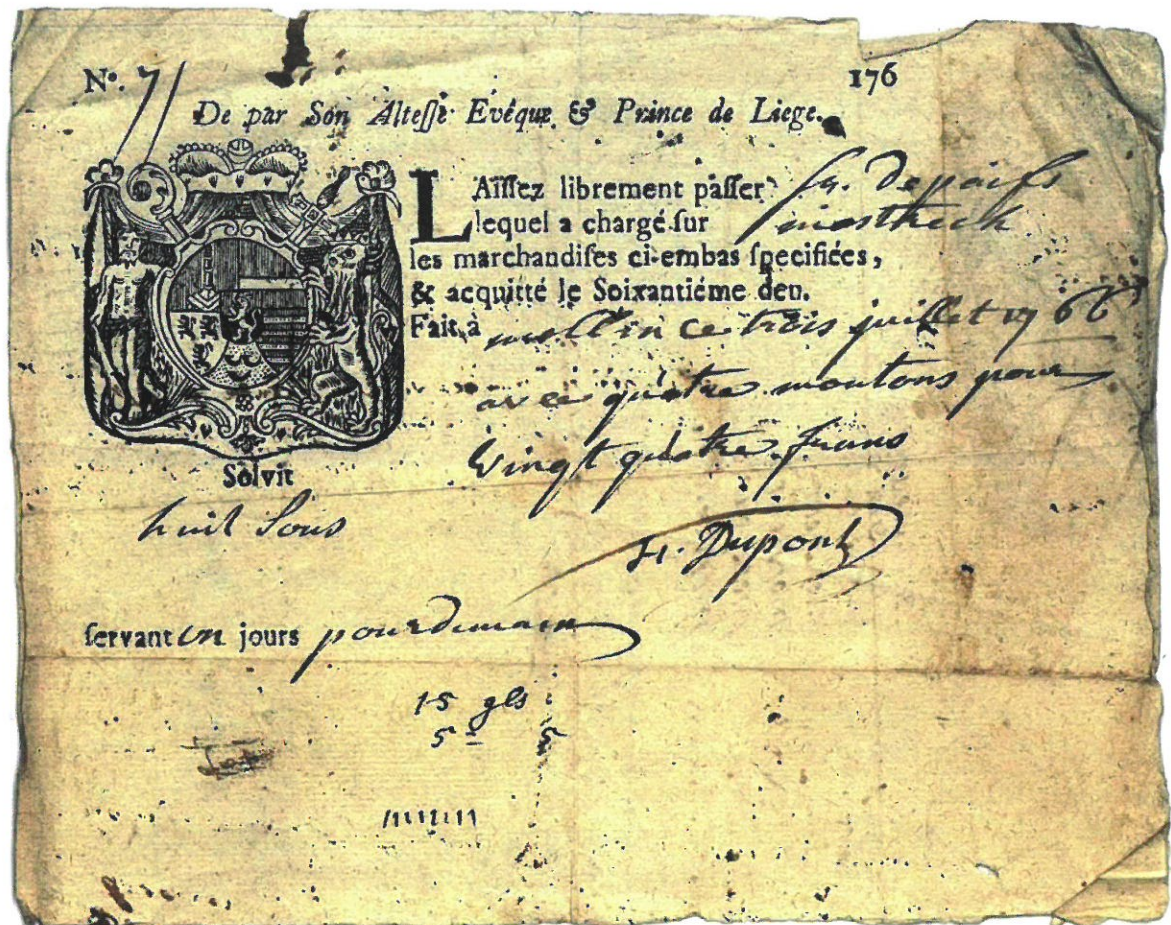 N°. 71 176
De par Son Altesse Evêque & Prince de Liege.
LAissez librement passer sr. Depaifs
lequel a chargé sur
les marchandises ci-embas specifiées,
& acquitté le Soixantiéme den.
Fait, à ce trois juillet 1766
avec quatre moutons pour
Vingt quatre frans
Solvit
huit Sous
H. Dupont
servant un jours pour demain
15 gls
5 - 5